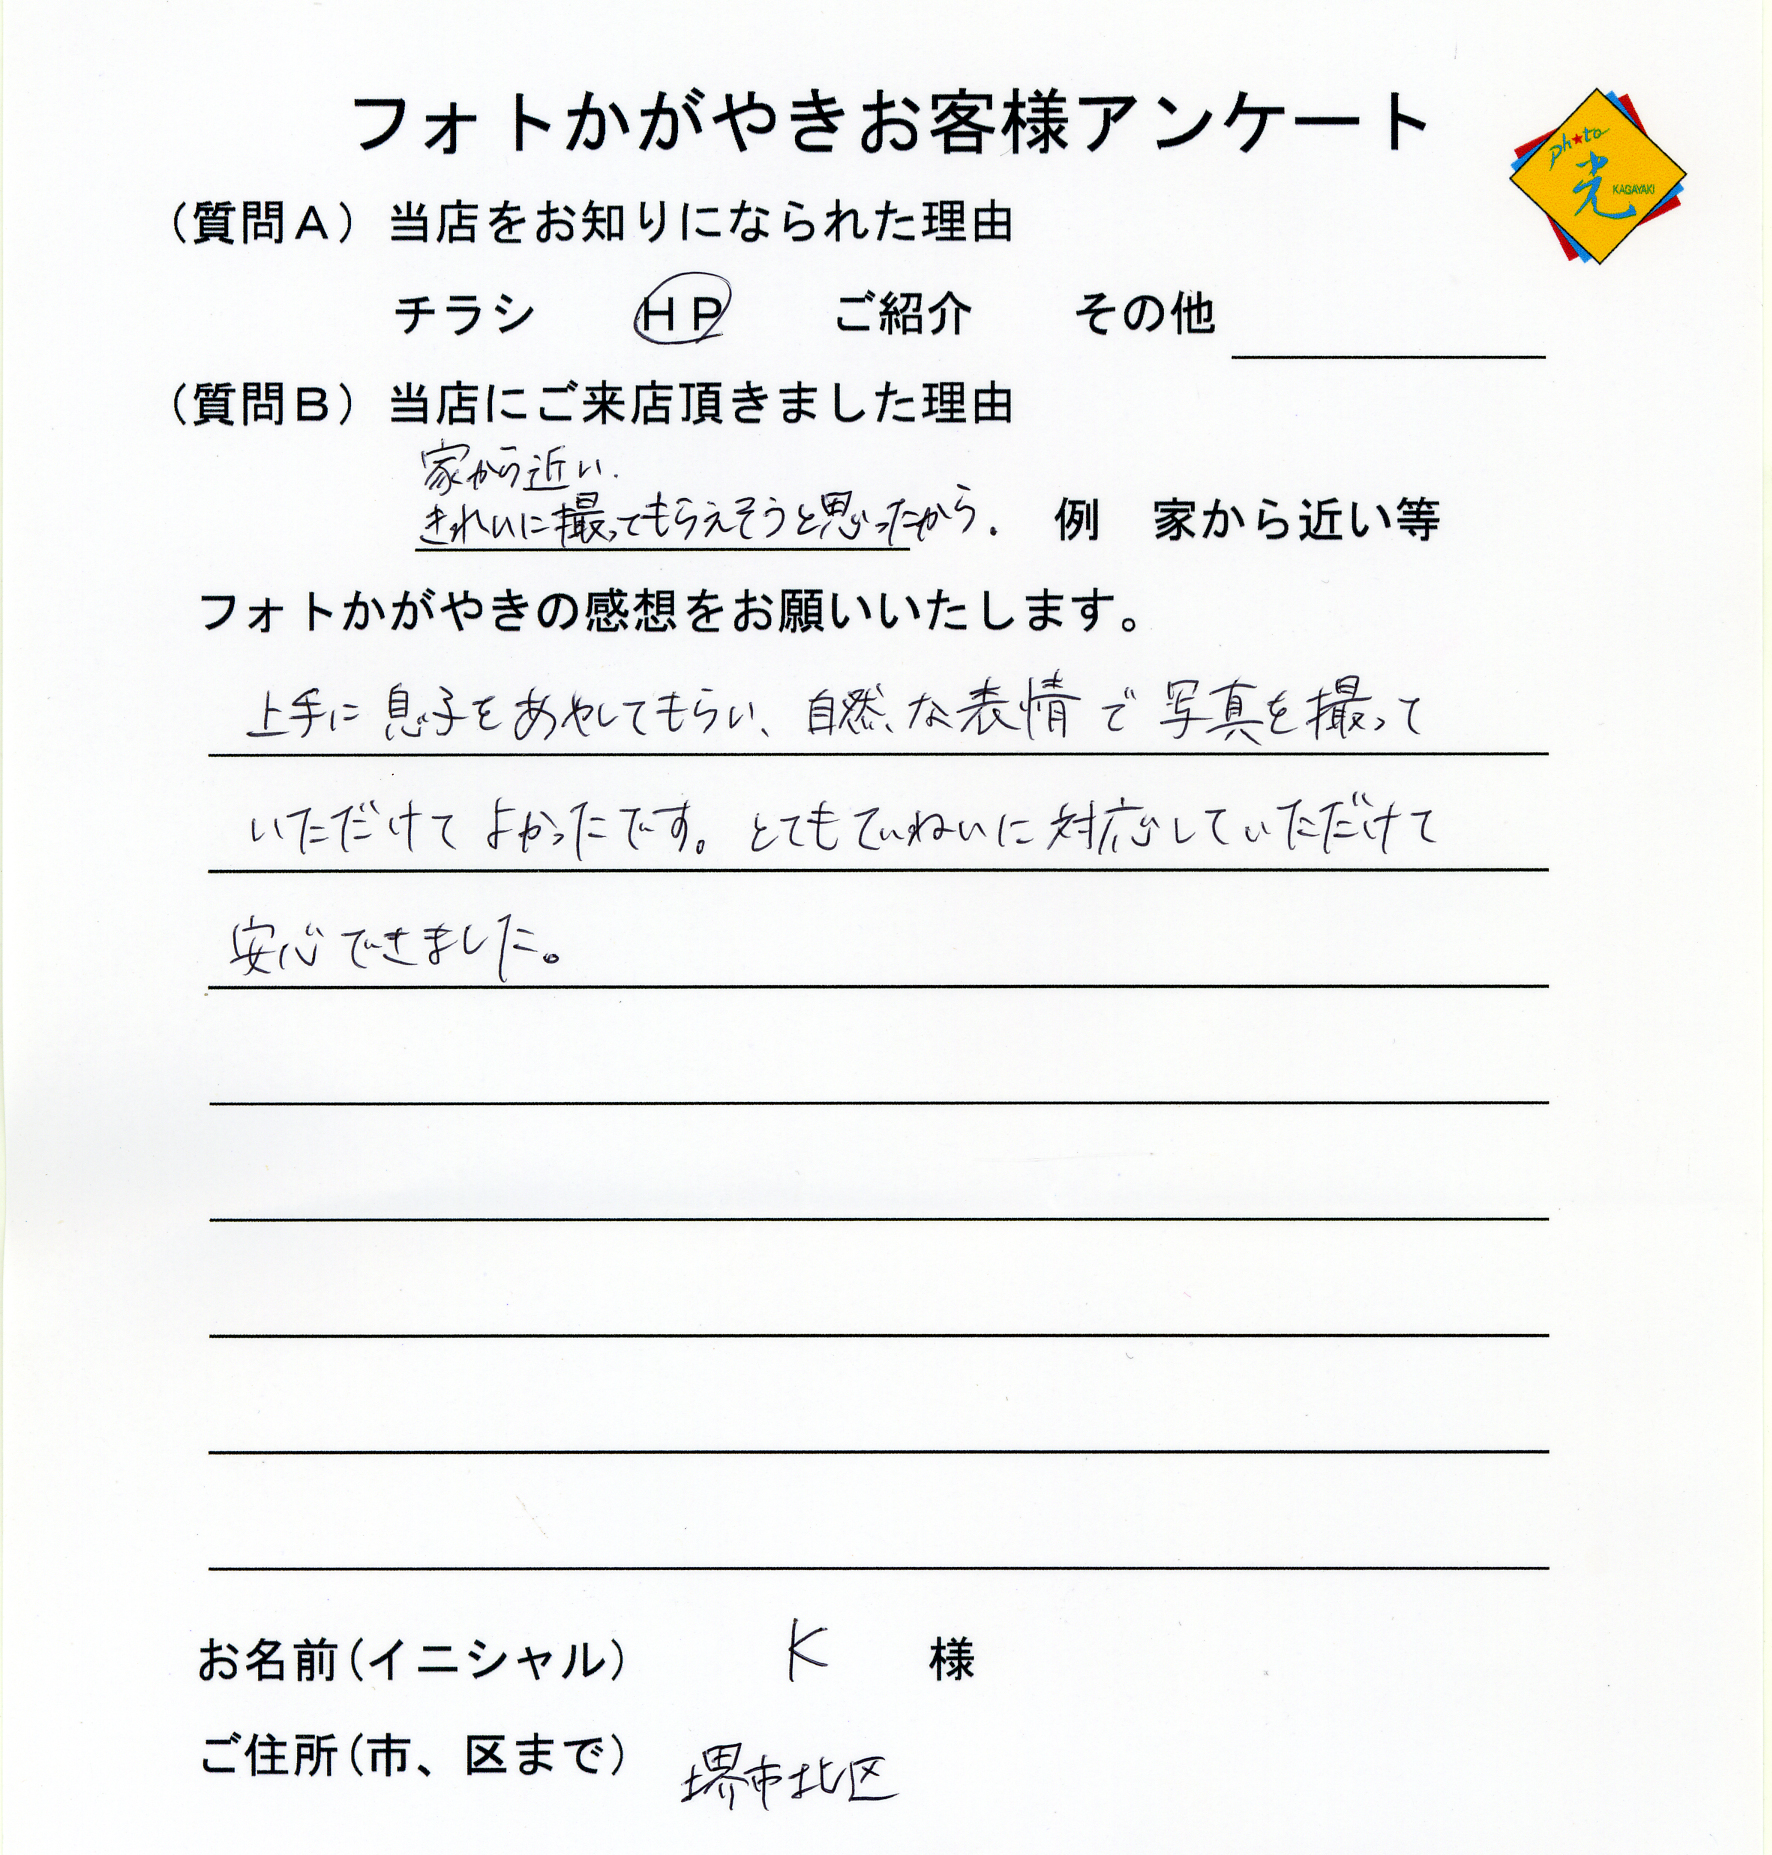 フォトかがやきお客様アンケート
photo
光
KAGAYAKI
(質問A)当店をお知りになられた理由
チラシ HP ご紹介 その他
(質問B)当店にご来店頂きました理由
家から近い.
きれいに撮ってもらえそうと思ったから. 例 家から近い等
フォトかがやきの感想をお願いいたします。
上手に息子をあやしてもらい、自然な表情で写真を撮って
いただけてよかったです。とてもていねいに対応していただけて
安心できました。
お名前(イニシャル) K 様
ご住所(市、区まで) 堺市北区